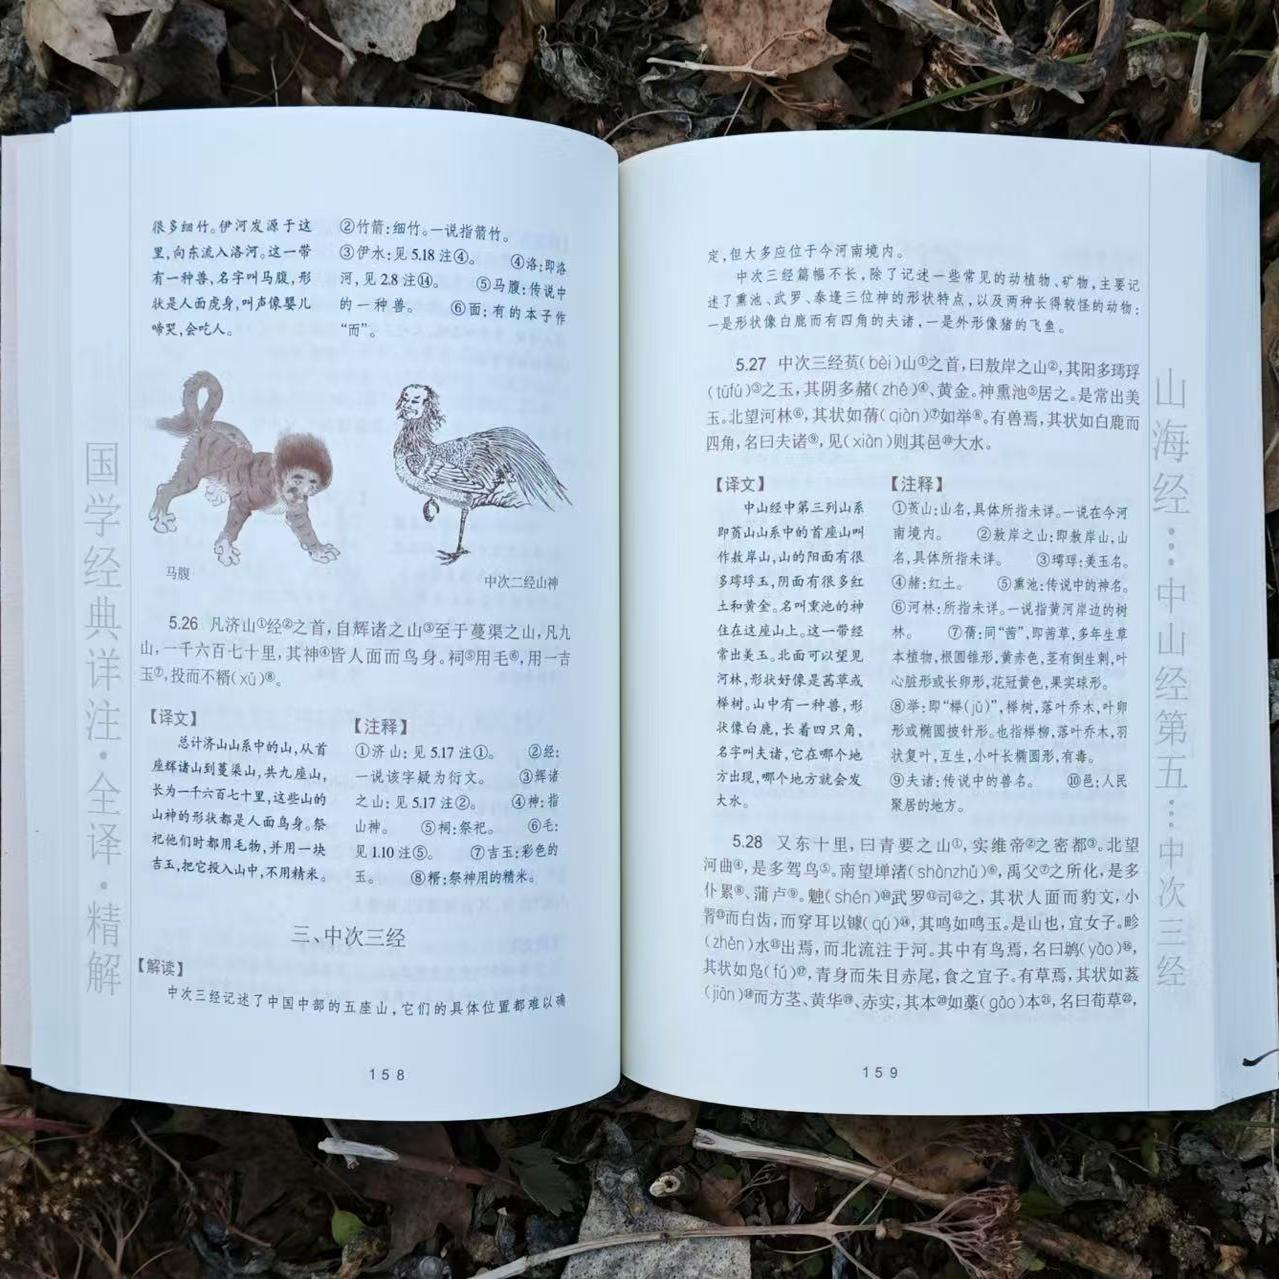 很多细竹。伊河发源于这
里,向东流入洛河。这一带
有一种兽,名字叫马腹,形
状是人面虎身,叫声像婴儿
啼哭,会吃人。
②竹箭:细竹。一说指箭竹。
③伊水:见 5.18 注④。 ④洛:即洛
河,见 2.8 注⑭。 ⑤马腹:传说中
的一种兽。 ⑥面:有的本子作
“而”。
马腹
中次二经山神
5.26 凡济山①经②之首,自辉诸之山③至于蔓渠之山,凡九
山,一千六百七十里,其神④皆人面而鸟身。祠⑤用毛⑥,用一吉
玉⑦,投而不糈(xǔ)⑧。
【译文】
总计济山山系中的山,从首
座辉诸山到蔓渠山,共九座山,
长为一千六百七十里,这些山的
山神的形状都是人面鸟身。祭
祀他们时都用毛物,并用一块
吉玉,把它投入山中,不用精米。
【注释】
①济山:见 5.17 注①。 ②经:
一说该字疑为衍文。 ③辉诸
之山:见 5.17 注②。 ④神:指
山神。 ⑤祠:祭祀。 ⑥毛:
见 1.10 注⑤。 ⑦吉玉:彩色的
玉。 ⑧糈:祭神用的精米。
三、中次三经
【解读】
中次三经记述了中国中部的五座山,它们的具体位置都难以确
158
国学经典详注·全译·精解
定,但大多应位于今河南境内。
中次三经篇幅不长,除了记述一些常见的动植物、矿物,主要记
述了熏池、武罗、泰逢三位神的形状特点,以及两种长得较怪的动物:
一是形状像白鹿而有四角的夫诸,一是外形像猪的飞鱼。
5.27 中次三经萯(bèi)山①之首,曰敖岸之山②,其阳多㻬琈
(tūfú)③之玉,其阴多赭(zhě)④、黄金。神熏池⑤居之。是常出美
玉。北望河林⑥,其状如蒨(qiàn)⑦如举⑧。有兽焉,其状如白鹿而
四角,名曰夫诸⑨,见(xiàn)则其邑⑩大水。
【译文】
中山经中第三列山系
即萯山山系中的首座山叫
作敖岸山,山的阳面有很
多㻬琈玉,阴面有很多红
土和黄金。名叫熏池的神
住在这座山上。这一带经
常出美玉。北面可以望见
河林,形状好像是茜草或
榉树。山中有一种兽,形
状像白鹿,长着四只角,
名字叫夫诸,它在哪个地
方出现,哪个地方就会发
大水。
【注释】
①萯山:山名,具体所指未详。一说在今河
南境内。 ②敖岸之山:即敖岸山,山
名,具体所指未详。 ③㻬琈:美玉名。
④赭:红土。 ⑤熏池:传说中的神名。
⑥河林:所指未详。一说指黄河岸边的树
林。 ⑦蒨:同“茜”,即茜草,多年生草
本植物,根圆锥形,黄赤色,茎有倒生刺,叶
心脏形或长卵形,花冠黄色,果实球形。
⑧举:即“榉(jǔ)”,榉树,落叶乔木,叶卵
形或椭圆披针形。也指榉柳,落叶乔木,羽
状复叶,互生,小叶长椭圆形,有毒。
⑨夫诸:传说中的兽名。 ⑩邑:人民
聚居的地方。
5.28 又东十里,曰青要之山①,实维帝②之密都③。北望
河曲④,是多驾鸟⑤。南望墠渚(shànzhǔ)⑥,禹父⑦之所化,是多
仆累⑧、蒲卢⑨。䰠(shén)⑩武罗⑪司⑫之,其状人面而豹文,小
䯚⑬而白齿,而穿耳以鐻(qú)⑭,其鸣如鸣玉。是山也,宜女子。畛
(zhěn)水⑮出焉,而北流注于河。其中有鸟焉,名曰鴢(yǎo)⑯,
其状如凫(fú)⑰,青身而朱目赤尾,食之宜子。有草焉,其状如葌
(jiān)⑱而方茎、黄华⑲、赤实,其本⑳如藁(gǎo)本㉑,名曰荀草㉒,
159
山海经…中山经第五…中次三经